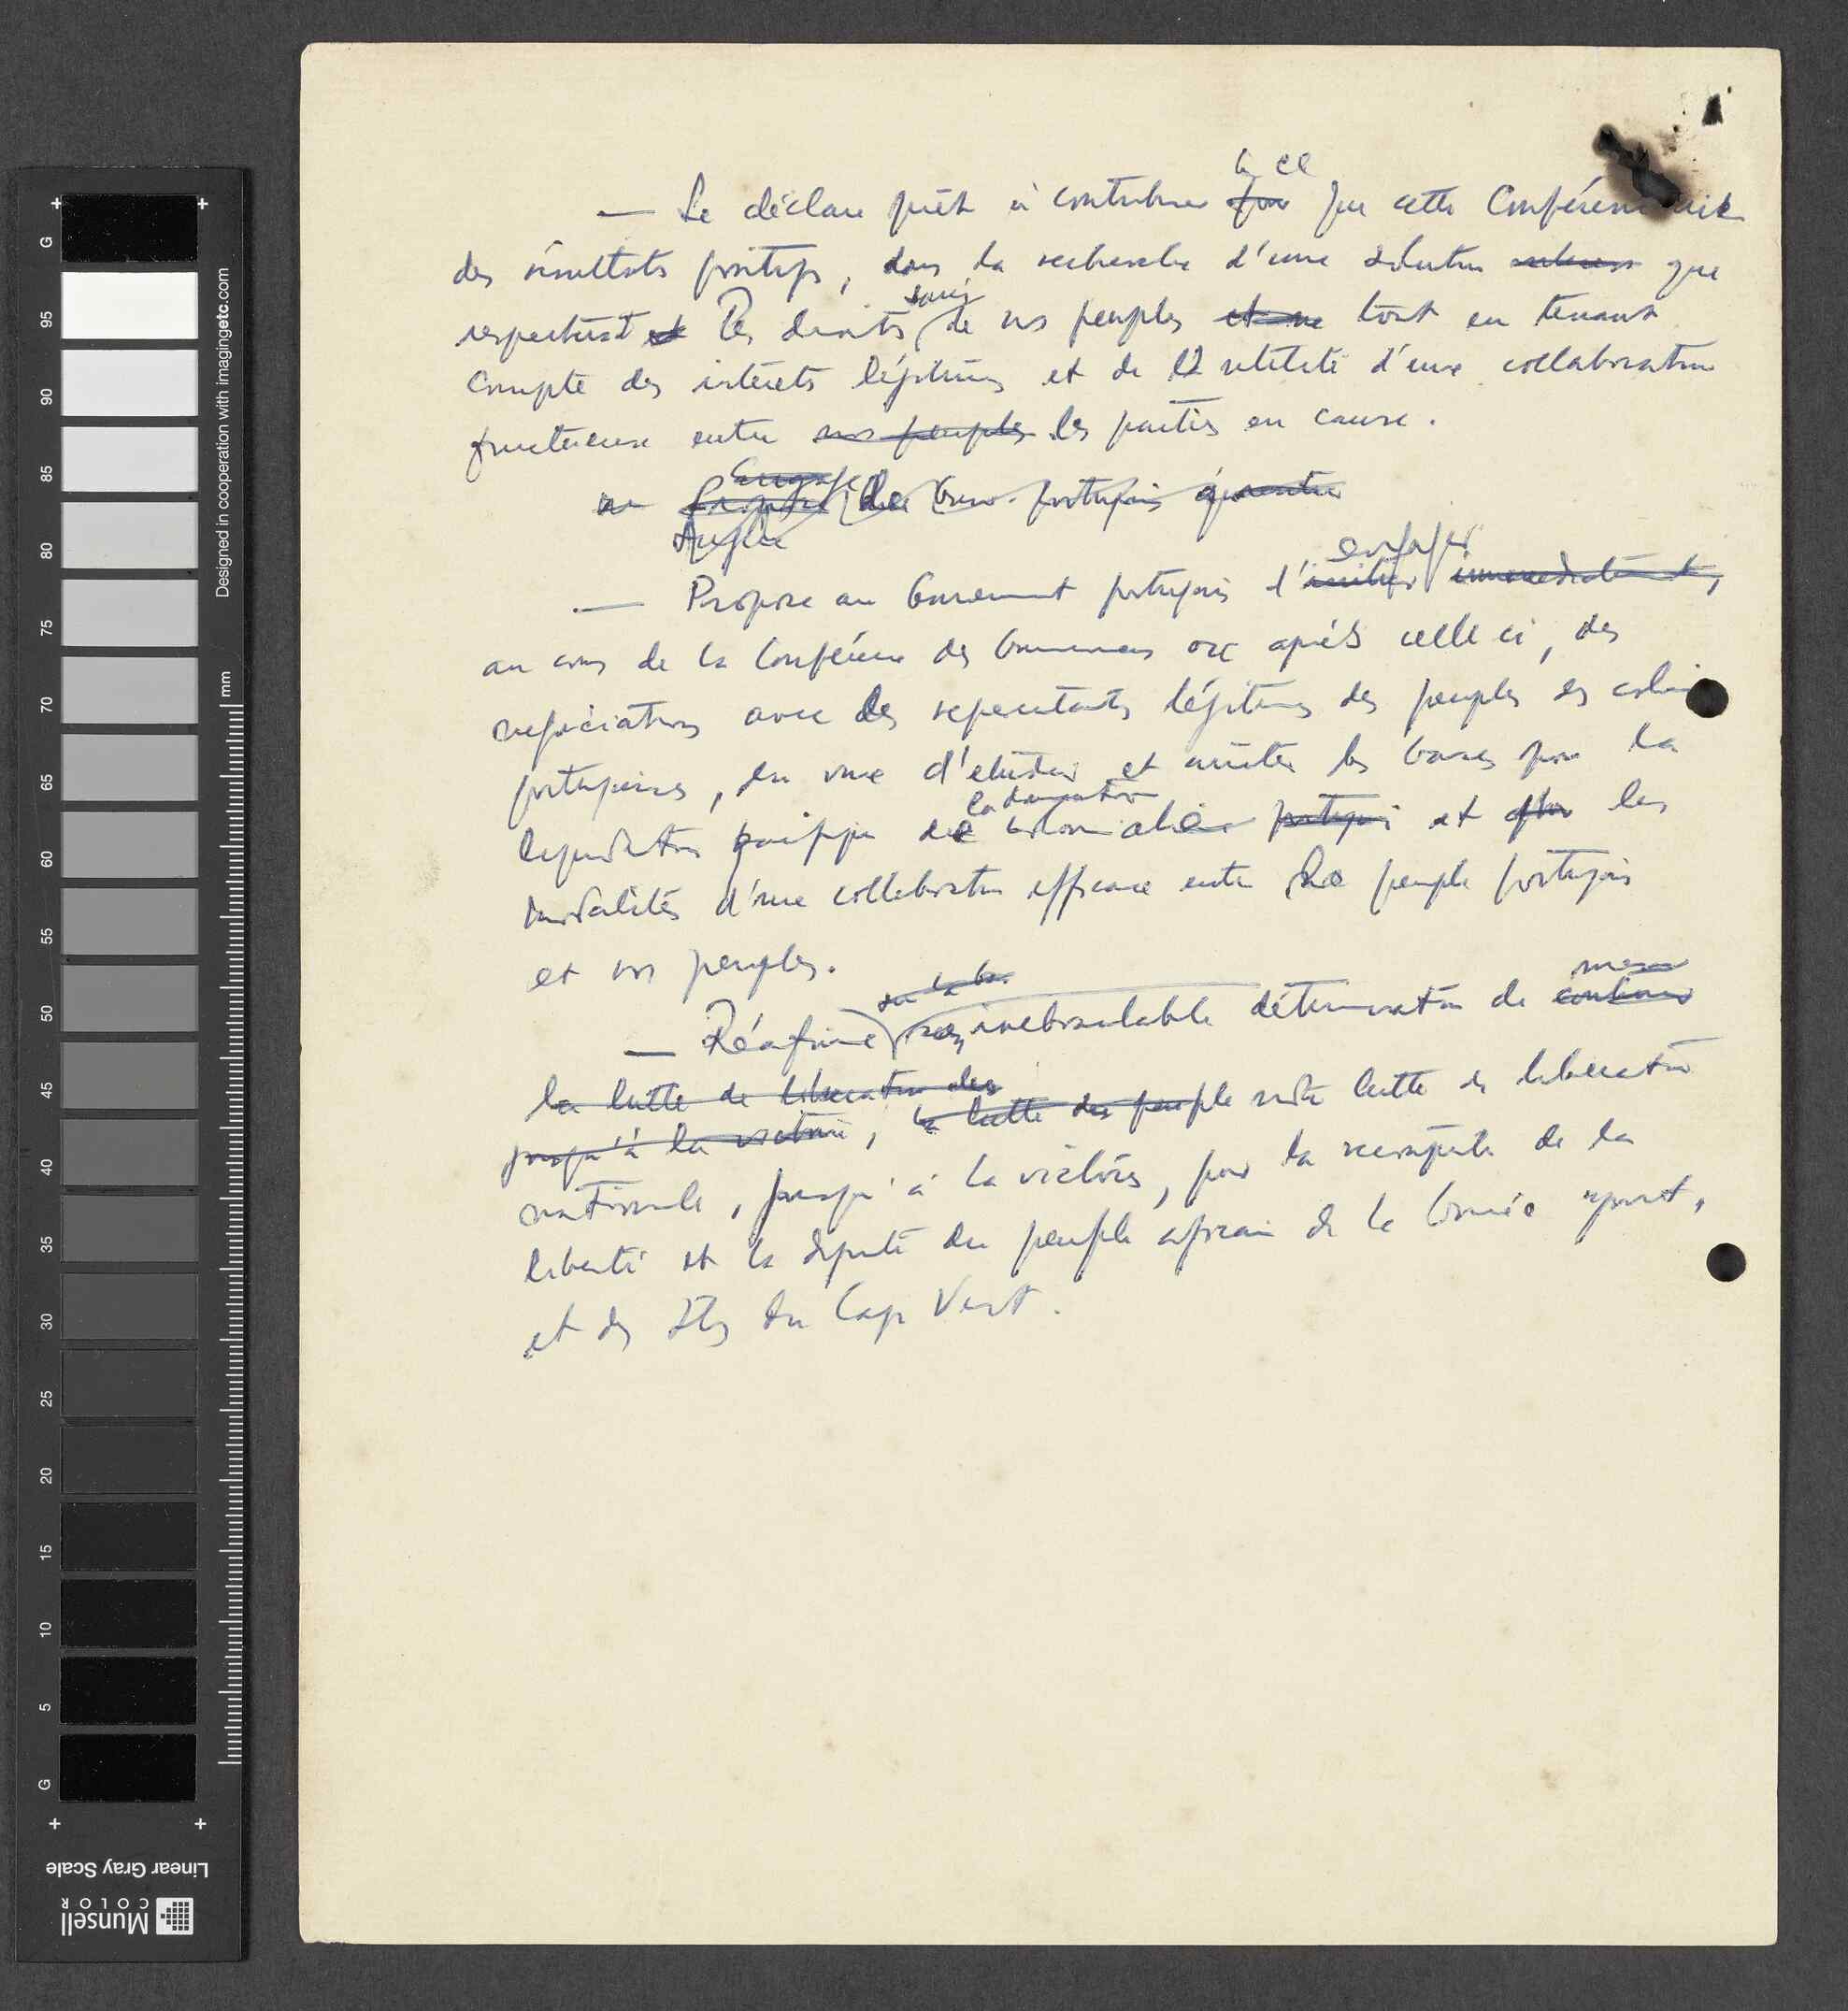 — Se déclare prêt à contribuer ~~pour~~ à ce que cette Conférence ait
des résultats positifs, dans la recherche d'une solution que
respecterait les droits sacrés de nos peuples ~~et ne~~ tout en tenant
compte des intérêts légitimes et de l'utilité d'une collaboration
fructueuse entre ~~nos peuples~~ les parties en cause.
~~Engage~~
~~Propose~~ ~~Gouv. portugais~~
— Propose au Gouvernement portugais d'~~initier~~ engager ~~immediatement,~~
au cours de la Conférence des Communes ou après celle ci, des
negociations avec des representants légitimes des peuples des colonies
portugaises, en vue d'etudier et arrêter les bases pour la
liquidation pacifique de la domination coloniale ~~portugais~~ et ~~pour~~ les
modalités d'une collaboration efficace entre le peuple portugais
et nos peuples.
~~sur la ba~~
— Réafirme inebranlable détermination de ~~mener~~ ~~continuer~~
~~la lutte de liberation des~~
~~jusqu'à la victoire~~, ~~la lutte des peuple~~ notre lutte de liberation
nationale, jusqu'à la victoire, pour la reconquête de la
liberté et la dignité du peuple africain de la Guinée "port",
et des Iles du Cap Vert.
G 95 90 85 80 75 70 65 60 55 50 45 40 35 30 25 20 15 10 5 G
mm
Designed in cooperation with imagingetc.com
Linear Gray Scale
Munsell
COLOR